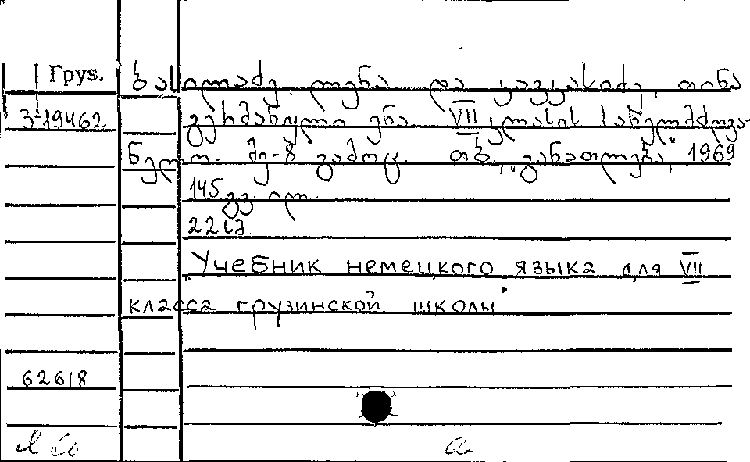 Груз.
ბასილაძე ლენა და კავკასიძე თინა
3-19462
გერმანული ენა VII კლასის სახელმძღვა
ნელო. მე-8 გამოც. თბ., "განათლება", 1969
145 გვ. ილ.
"Учебник немецкого языка для VII
класса грузинской школы"
62618